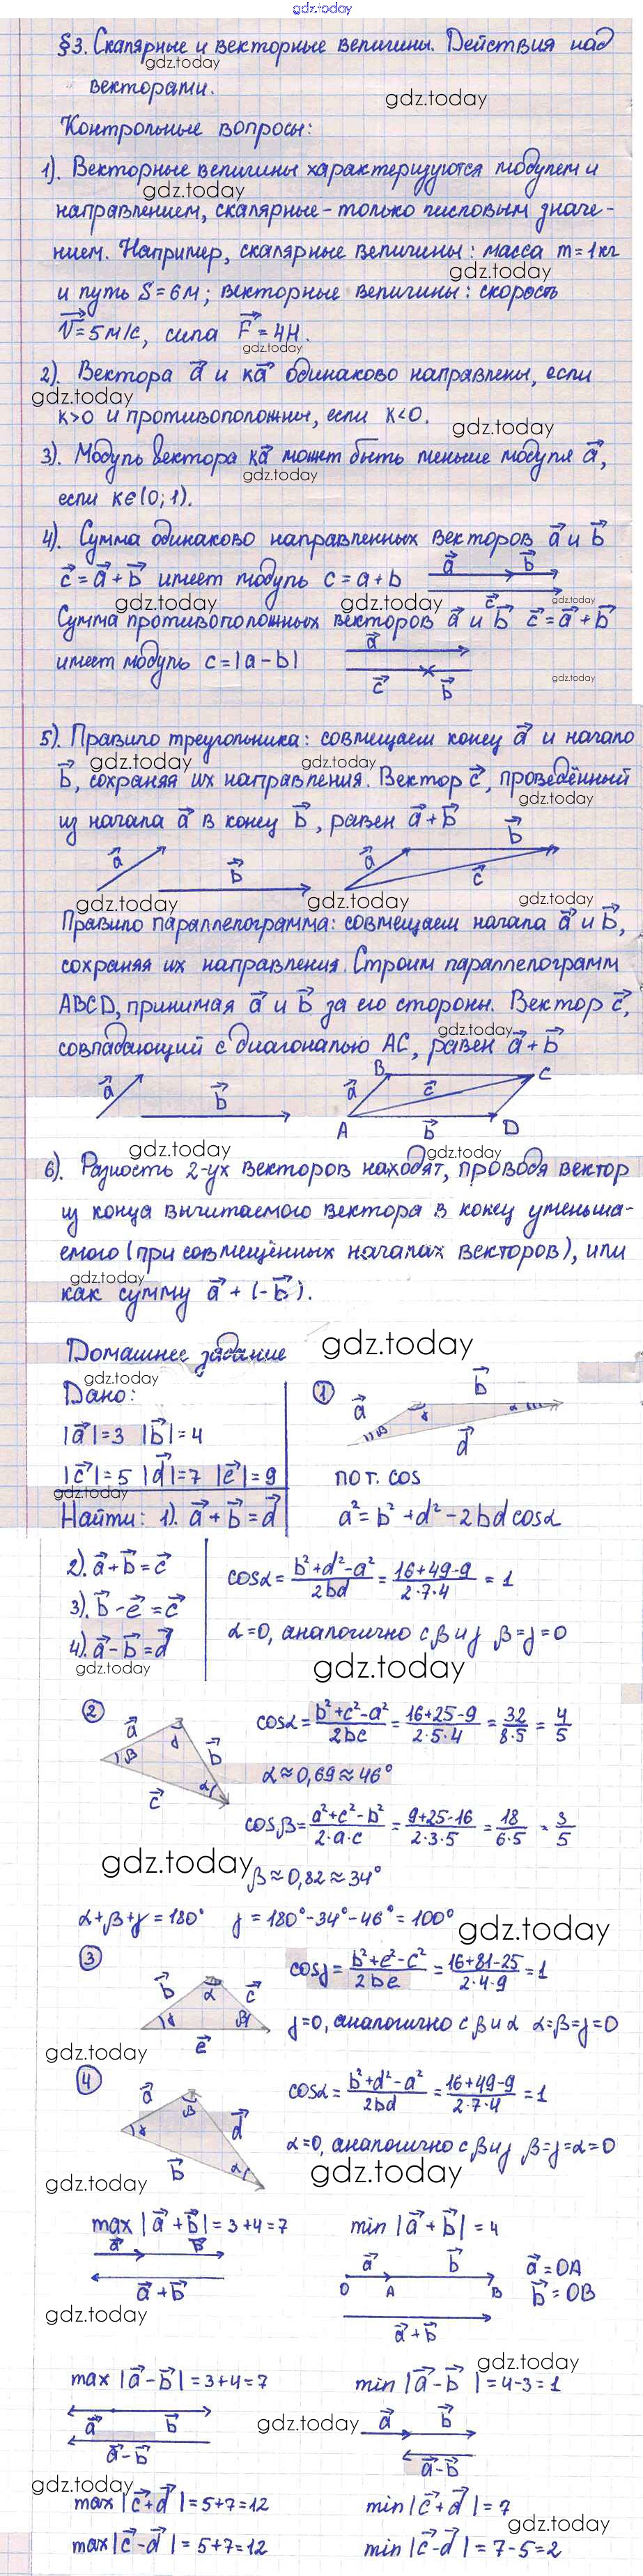 gdz.today
§3. Скалярные и векторные величины. Действия над
gdz.today
векторами.
gdz.today
Контрольные вопросы:
1). Векторные величины характеризуются модулем и
gdz.today
направлением, скалярные - только числовым значе-
нием. Например, скалярные величины: масса m = 1 кг
gdz.today
и путь S = 6 м; векторные величины: скорость
V⃗ = 5 м/с, сила F⃗ = 4Н.
gdz.today
2). Вектора a⃗ и ka⃗ одинаково направлены, если
gdz.today
k>0 и противоположны, если k<0.
gdz.today
3). Модуль вектора ka⃗ может быть меньше модуля a⃗,
gdz.today
если k∈(0;1).
4). Сумма одинаково направленных векторов a⃗ и b⃗
c⃗ = a⃗ + b⃗ имеет модуль c = a + b a⃗ b⃗
gdz.today gdz.today c⃗ gdz.today
Сумма противоположных векторов a⃗ и b⃗ c⃗ = a⃗ + b⃗
имеет модуль c = |a - b| a⃗
c⃗ b⃗ gdz.today
5). Правило треугольника: совмещаем конец a⃗ и начало
gdz.today gdz.today
b⃗, сохраняя их направления. Вектор c⃗, проведённый
gdz.today
из начала a⃗ в конец b⃗, равен a⃗ + b⃗
a⃗ b⃗ a⃗ b⃗ c⃗
gdz.today gdz.today gdz.today
Правило параллелограмма: совмещаем начала a⃗ и b⃗,
сохраняя их направления. Строим параллелограмм
ABCD, принимая a⃗ и b⃗ за его стороны. Вектор c⃗,
gdz.today
совпадающий с диагональю AC, равен a⃗ + b⃗
a⃗ b⃗ a⃗ B c⃗ C
A b⃗ D
gdz.today gdz.today
6). Разность 2-ух векторов находят, проводя вектор
из конца вычитаемого вектора в конец уменьша-
емого (при совмещённых началах векторов), или
gdz.today
как сумму a⃗ + (-b⃗).
Домашнее задание gdz.today
gdz.today
Дано: 1 a⃗ b⃗
|a⃗| = 3 |b⃗| = 4 β γ α d⃗
|c⃗| = 5 |d⃗| = 7 |e⃗| = 9 по т. cos
gdz.today
Найти: 1). a⃗ + b⃗ = d⃗ a² = b² + d² - 2bd cosα
2). a⃗ + b⃗ = c⃗ cosα = b²+d²-a² / 2bd = 16+49-9 / 2·7·4 = 1
3). b⃗ - e⃗ = c⃗
4). a⃗ - b⃗ = d⃗ α = 0, аналогично с β и γ β = γ = 0
gdz.today gdz.today
2 a⃗ β γ b⃗ α c⃗ cosα = b²+c²-a² / 2bc = 16+25-9 / 2·5·4 = 32/8·5 = 4/5
α ≈ 0,69 ≈ 46°
cosβ = a²+c²-b² / 2·a·c = 9+25-16 / 2·3·5 = 18/6·5 = 3/5
gdz.today
β ≈ 0,82 ≈ 34°
α + β + γ = 180° γ = 180° - 34° - 46° = 100°
gdz.today
3 b⃗ α c⃗ γ β e⃗ cosγ = b²+e²-c² / 2be = 16+81-25 / 2·4·9 = 1
γ = 0, аналогично с β и α α = β = γ = 0
gdz.today
4 a⃗ β d⃗ γ α b⃗ cosα = b²+d²-a² / 2bd = 16+49-9 / 2·7·4 = 1
α = 0, аналогично с β и γ β = γ = α = 0
gdz.today gdz.today
max |a⃗ + b⃗| = 3 + 4 = 7 min |a⃗ + b⃗| = 4
a⃗ b⃗ a⃗ b⃗ a⃗ = OA
a⃗ + b⃗ O A B b⃗ = OB
gdz.today a⃗ + b⃗
gdz.today
max |a⃗ - b⃗| = 3 + 4 = 7 min |a⃗ - b⃗| = 4 - 3 = 1
a⃗ b⃗ gdz.today a⃗ b⃗
a⃗ - b⃗ a⃗ - b⃗
gdz.today
max |c⃗ + d⃗| = 5 + 7 = 12 min |c⃗ + d⃗| = 7
gdz.today
max |c⃗ - d⃗| = 5 + 7 = 12 min |c⃗ - d⃗| = 7 - 5 = 2